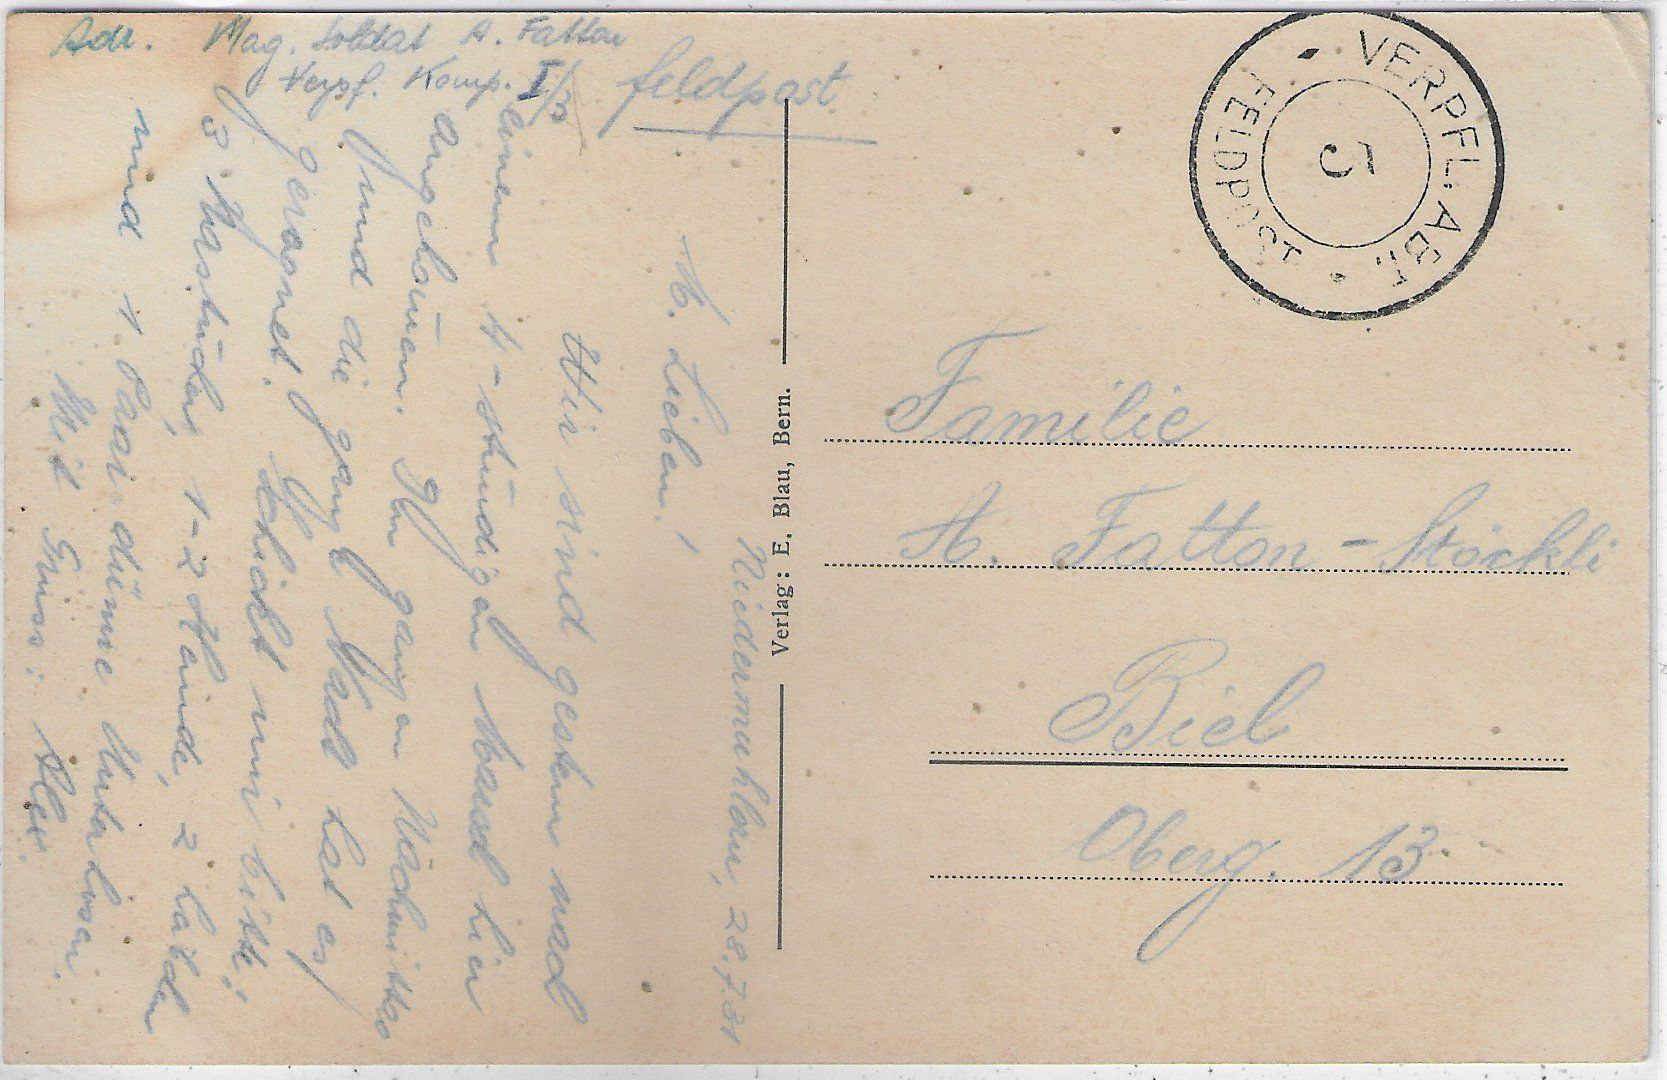 Adr. Mag. Soldat A. Fatton
Verpf. Komp. I/3
Feldpost
Niedermuhlern, 28.7.31
M. Lieben!
Wir sind gestern nach
einem 4-stündigen Marsch hier
angekommen. Den ganzen Nachmittag
und die ganze Nacht hat es
geregnet. Schickt mir bitte:
3 Nastücher, 1-2 Hemde, 2
und 1 Paar dünne Unterhosen.
Mit Gruss: Alex.
Verlag: E. Blau, Bern.
VERPFL. ABT.
FELDPOST
5
Familie
A. Fatton-Stöckli
Biel
Oberg. 13